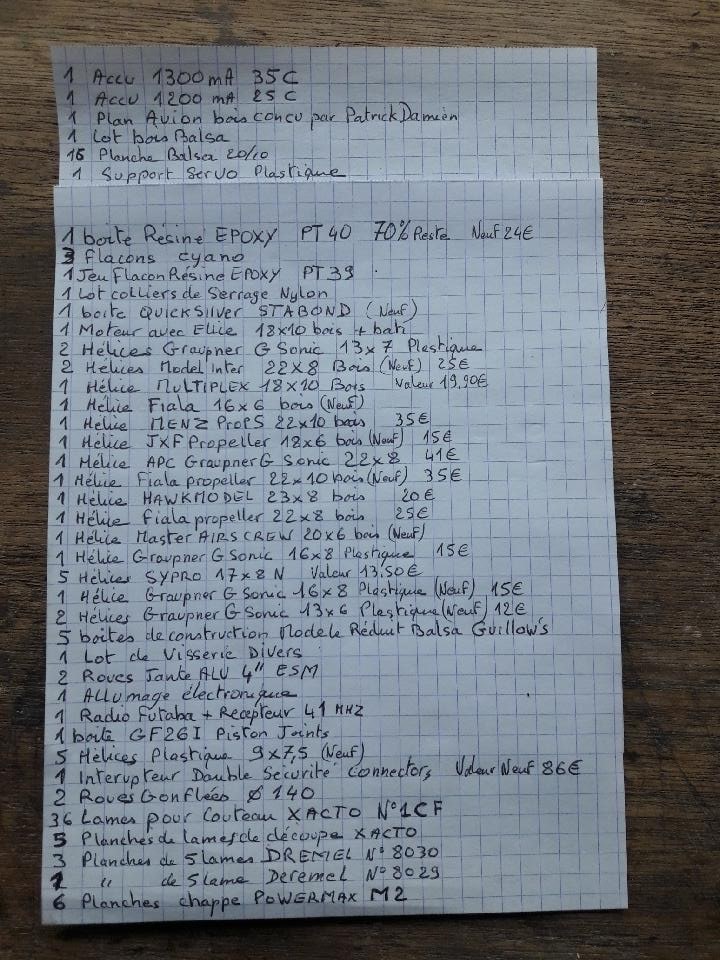 1 Accu 1300mA 35C
1 Accu 1200 mA 25 C
1 Plan Avion bois concu par Patrick Damien
1 Lot bois Balsa
15 Planche Balsa 20/10
1 Support Servo Plastique
1 boite Résine EPOXY PT 40 70% Reste Neuf 24€
3 flacons cyano
1 Jeu Flacon Résine EPOXY PT 39
1 Lot colliers de Serrage Nylon
1 boite QUICKSILVER STABOND (Neuf)
1 Moteur avec Elice 18x10 bois + bati
2 Hélices Graupner G Sonic 13x7 Plastique
2 Hélices Model Inter 22x8 Bois (Neuf) 25€
1 Hélice MULTIPLEX 18x10 Bois Valeur 19,90€
1 Hélice Fiala 16x6 bois (Neuf)
1 Hélice MENZ ProPS 22x10 bois 35€
1 Hélice JXF Propeller 18x6 bois (Neuf) 15€
1 Hélice APC Graupner G Sonic 22x8 41€
1 Hélice Fiala propeller 22x10 bois (Neuf) 35€
1 Hélice HAWKMODEL 23x8 bois 20€
1 Hélice fiala propeller 22x8 bois 25€
1 Hélice Master AIRSCREW 20x6 bois (Neuf)
1 Hélice Graupner G Sonic 16x8 Plastique 15€
5 Hélices SYPRO 17x8 N Valeur 13,50€
1 Hélice Graupner G Sonic 16x8 Plastique (Neuf) 15€
2 Hélices Graupner G Sonic 13x6 Plastique (Neuf) 12€
5 boites de construction Modele Réduit Balsa Guillow's
1 Lot de Visserie Divers
2 Roues Jante ALU 4" ESM
1 Allumage électronique
1 Radio Futaba + Recepteur 41 MHZ
1 boite GF26I Piston Joints
5 Hélices Plastique 9x7,5 (Neuf)
1 Interupteur Double Sécurité Connectors Valeur Neuf 86€
2 Roues Gonflées Ø 140
36 Lames pour Couteau XACTO N°1CF
5 Planches de lames de découpe XACTO
3 Planches de 5 lames DREMEL N° 8030
1 " de 5 lame Déremel N° 8029
6 Planches chappe POWERMAX M2